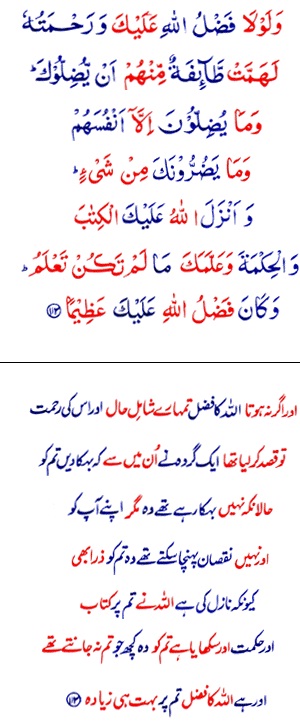 وَلَوْلَا فَضْلُ اللهِ عَلَيْكَ وَرَحْمَتُهٗ
لَهَمَّتْ طَّآئِفَةٌ مِّنْهُمْ اَنْ يُّضِلُّوْكَ ؕ
وَمَا يُضِلُّوْنَ اِلَّاۤ اَنْفُسَهُمْ
وَمَا يَضُرُّوْنَكَ مِنْ شَىْءٍ ؕ
وَ اَنْزَلَ اللهُ عَلَيْكَ الْكِتٰبَ
وَالْحِكْمَةَ وَعَلَّمَكَ مَا لَمْ تَكُنْ تَعْلَمُ ؕ
وَكَانَ فَضْلُ اللهِ عَلَيْكَ عَظِيْمًا ﴿۱۱۳﴾
اور اگر نہ ہوتا اللہ کا فضل تمہارے شاملِ حال اور اس کی رحمت
تو قصد کر لیا تھا ایک گروہ نے اُن میں سے کہ بہکا دیں تم کو
حالانکہ نہیں بہکا رہے تھے وہ مگر اپنے آپ کو
اور نہیں نقصان پہنچا سکتے تھے وہ تم کو ذرا بھی
کیونکہ نازل کی ہے اللہ نے تم پر کتاب
اور حکمت اور سکھایا ہے تم کو وہ کچھ جو تم نہ جانتے تھے
اور ہے اللہ کا فضل تم پر بہت ہی زیادہ ﴿۱۱۳﴾